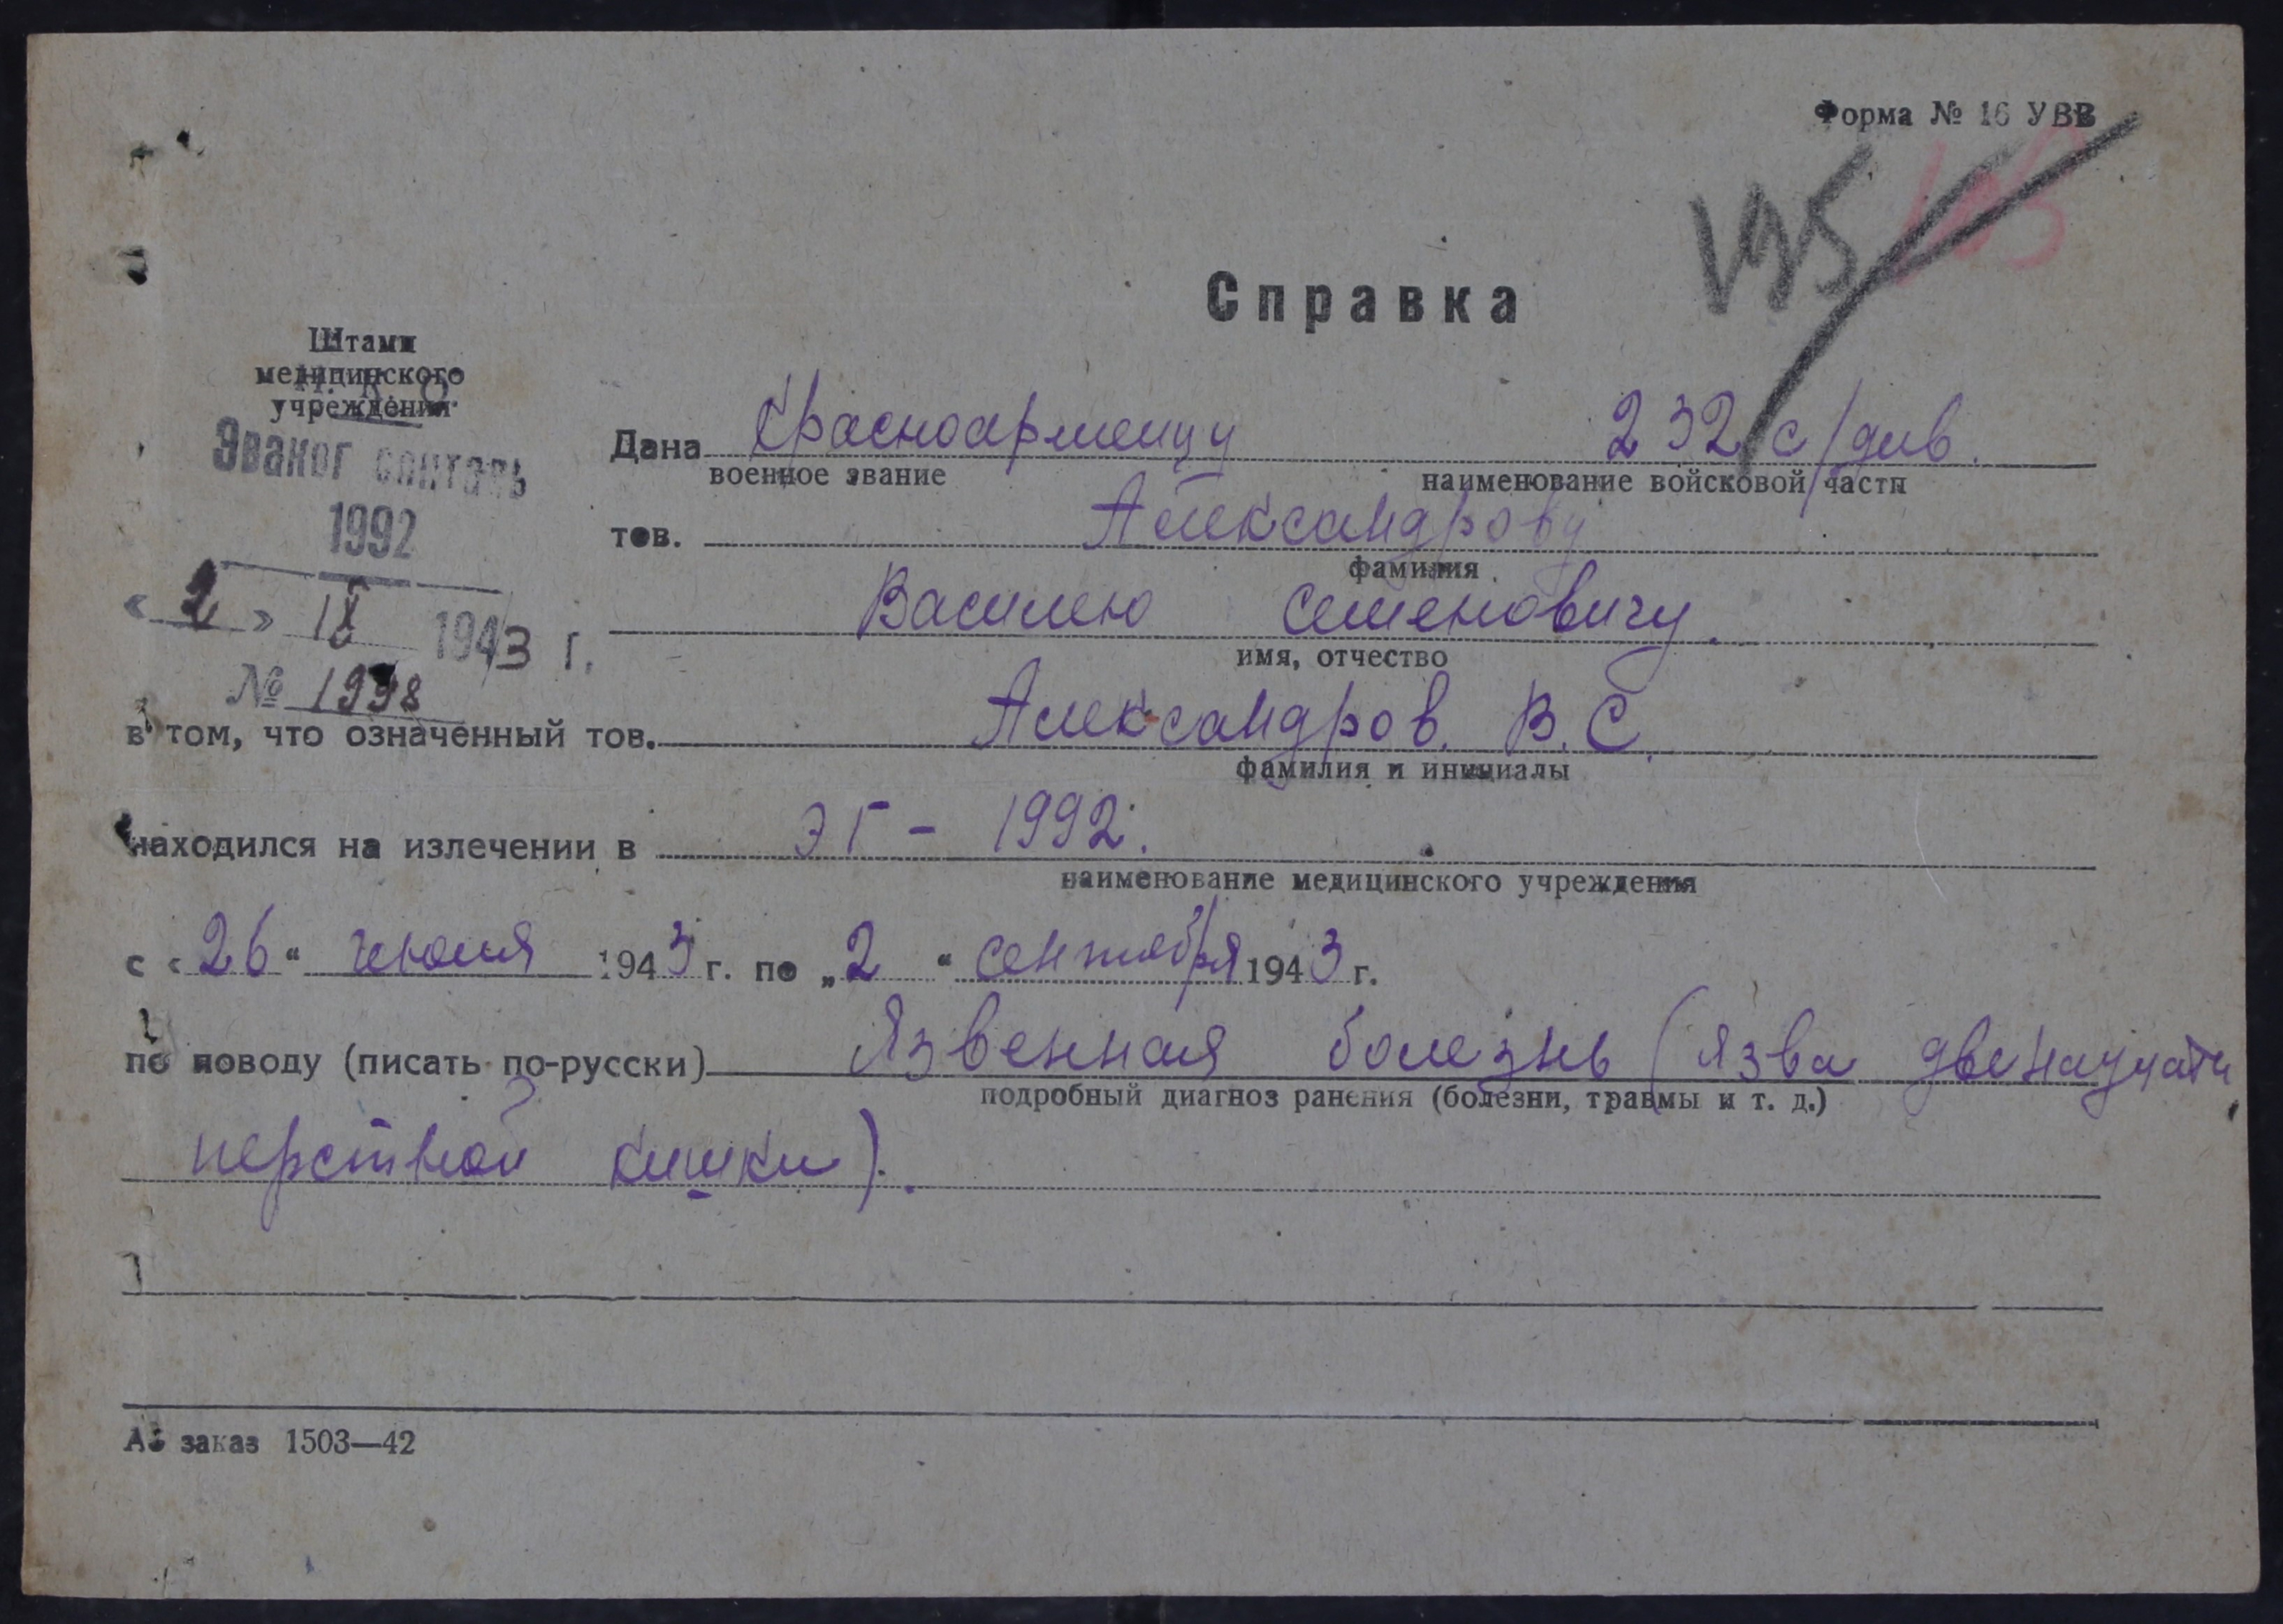 Форма № 16 УВВ
195
Справка
Штамп
медицинского
учреждения
Н. К. О.
Эвакогоспиталь
1992
« 2 » IX 1943 г.
№ 1998
Дана Красноармейцу 232 с/див.
военное звание наименование войсковой части
тов. Александрову
фамилия
Василию Семеновичу.
имя, отчество
в том, что означенный тов. Александров. В. С.
фамилия и инициалы
находился на излечении в ЭГ - 1992.
наименование медицинского учреждения
с «26" июля 1943 г. по „2 " сентября 1943 г.
по поводу (писать по-русски) Язвенная болезнь (язва двенадцати
подробный диагноз ранения (болезни, травмы и т. д.)
перстной кишки).
заказ 1503—42